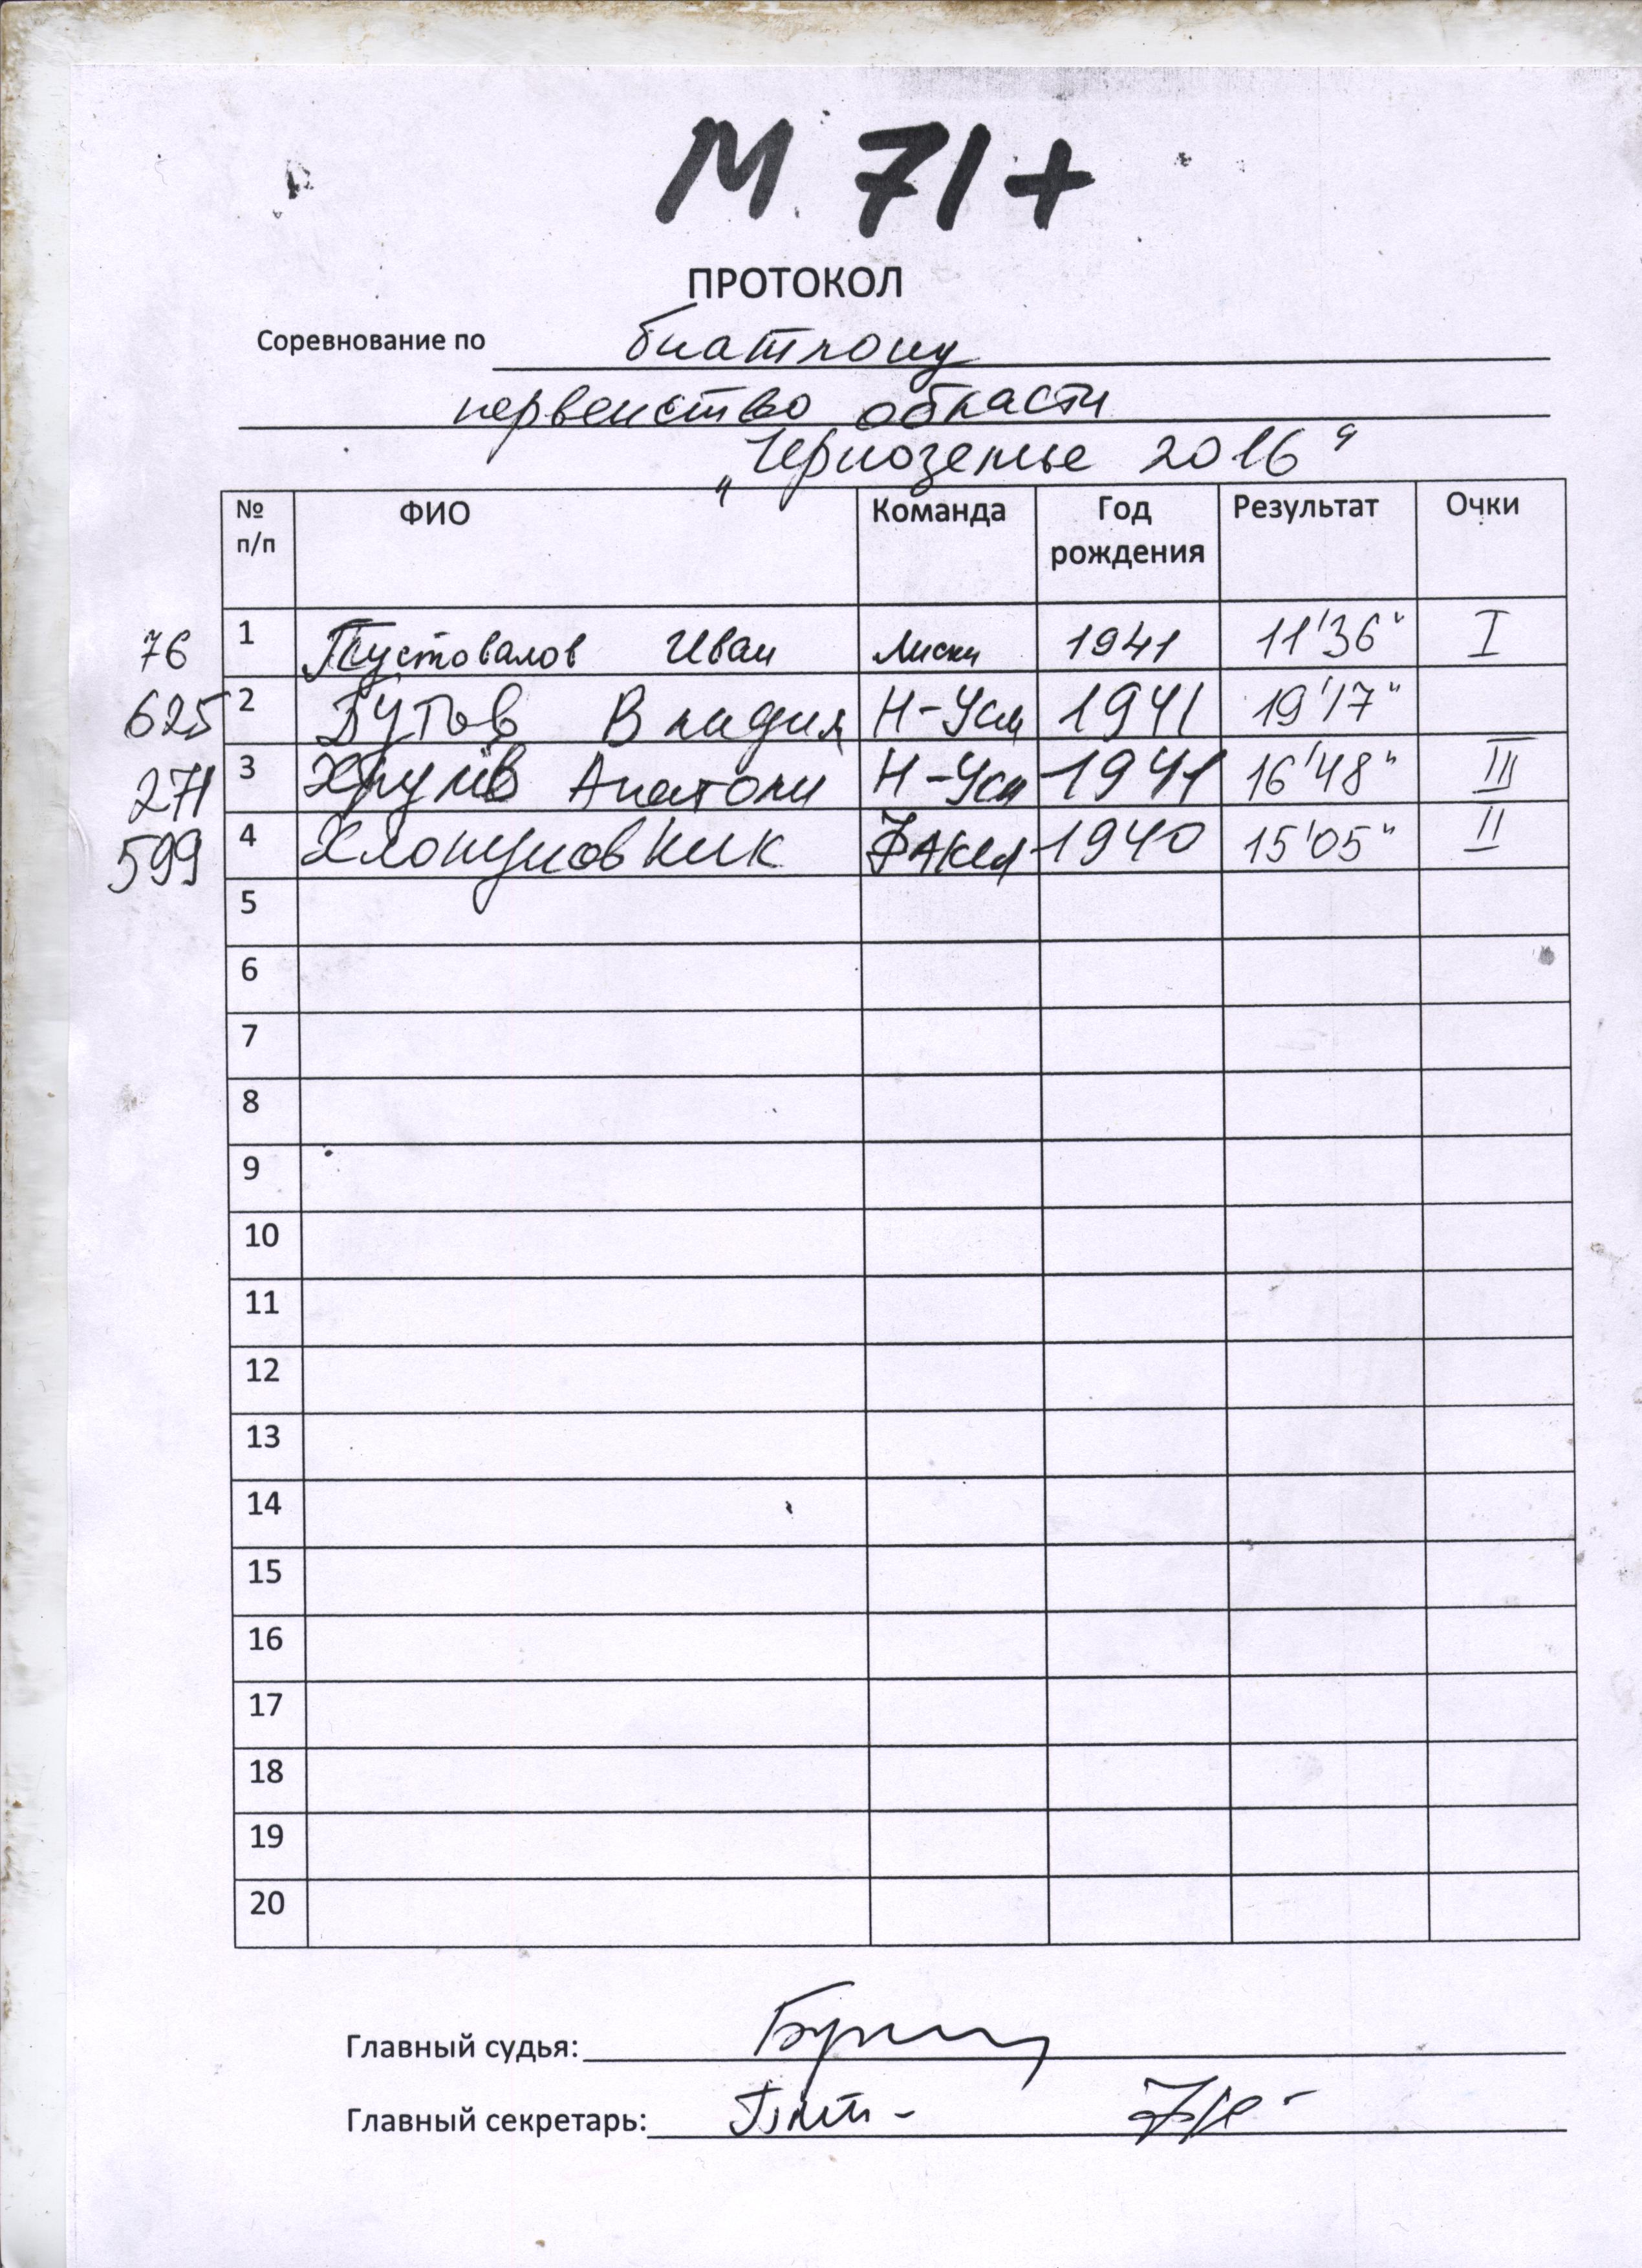 М 71+
ПРОТОКОЛ
Соревнование по биатлону
первенство области
"Черноземье 2016"
№ п/п ФИО Команда Год рождения Результат Очки
76 1 Пустовалов Иван Лиски 1941 11'36" I
625 2 Бутов Владим Н-Усм 1941 19'17"
271 3 Анатоли Н-Усм 1941 16'48" III
599 4 Ник Факел 1940 15'05" II
5
6
7
8
9
10
11
12
13
14
15
16
17
18
19
20
Главный судья:
Главный секретарь: